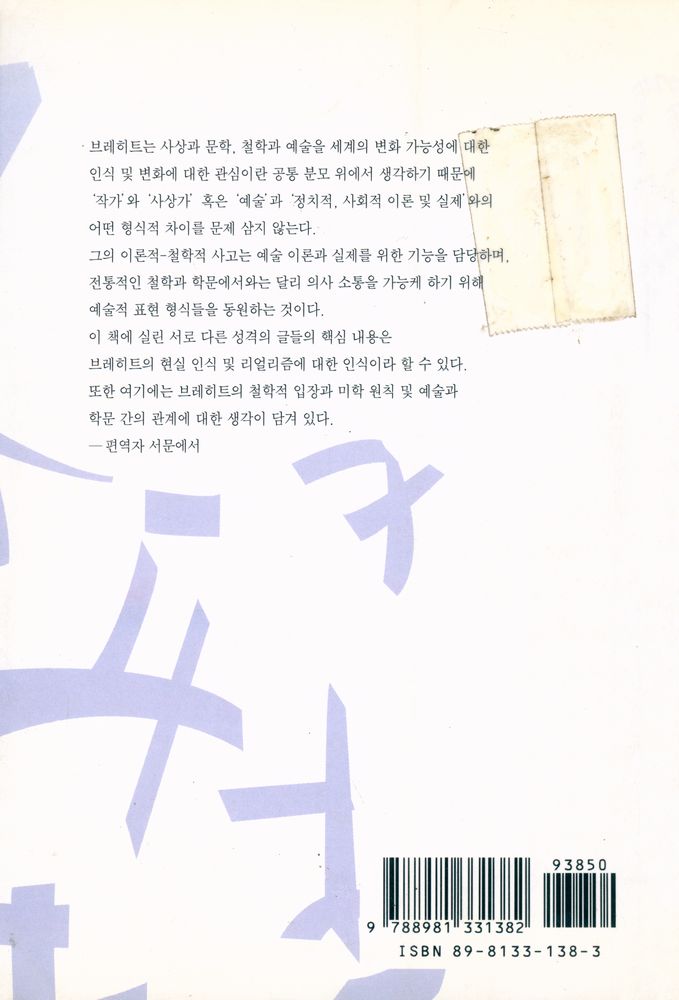 브레히트는 사상과 문학, 철학과 예술을 세계의 변화 가능성에 대한
인식 및 변화에 대한 관심이란 공통 분모 위에서 생각하기 때문에
‘작가’와 ‘사상가’ 혹은 ‘예술’과 ‘정치적, 사회적 이론 및 실제’와의
어떤 형식적 차이를 문제 삼지 않는다.
그의 이론적-철학적 사고는 예술 이론과 실제를 위한 기능을 담당하며,
전통적인 철학과 학문에서와는 달리 의사 소통을 가능케 하기 위해
예술적 표현 형식들을 동원하는 것이다.
이 책에 실린 서로 다른 성격의 글들의 핵심 내용은
브레히트의 현실 인식 및 리얼리즘에 대한 인식이라 할 수 있다.
또한 여기에는 브레히트의 철학적 입장과 미학 원칙 및 예술과
학문 간의 관계에 대한 생각이 담겨 있다.
─ 편역자 서문에서
93850
9 788981 331382
ISBN 89-8133-138-3